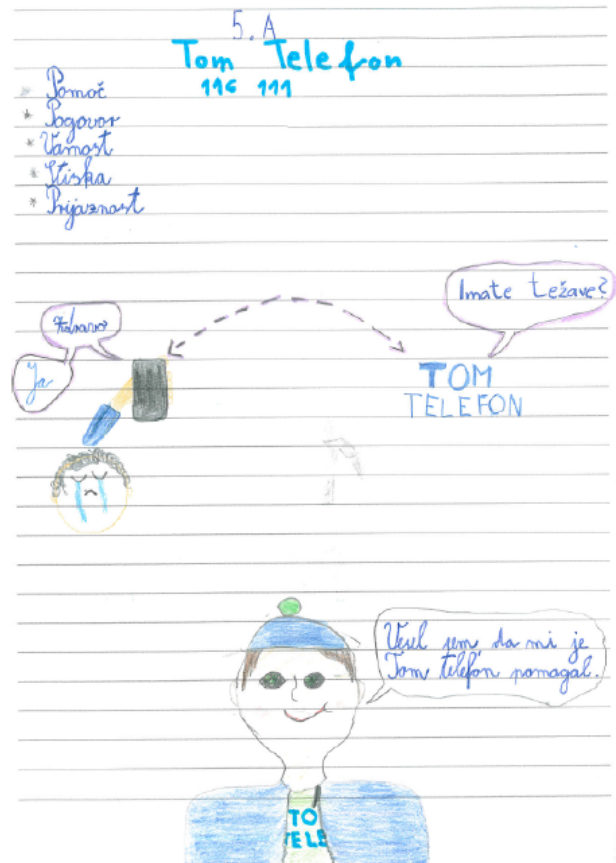 5. A
Tom Telefon
116 111
* Pomoč
* Pogovor
* Varnost
* Stiska
* Prijaznost
Imate težave?
Zdravo
Ja
TOM
TELEFON
Vesel sem, da mi je
Tom telefon pomagal.
TO
TELE